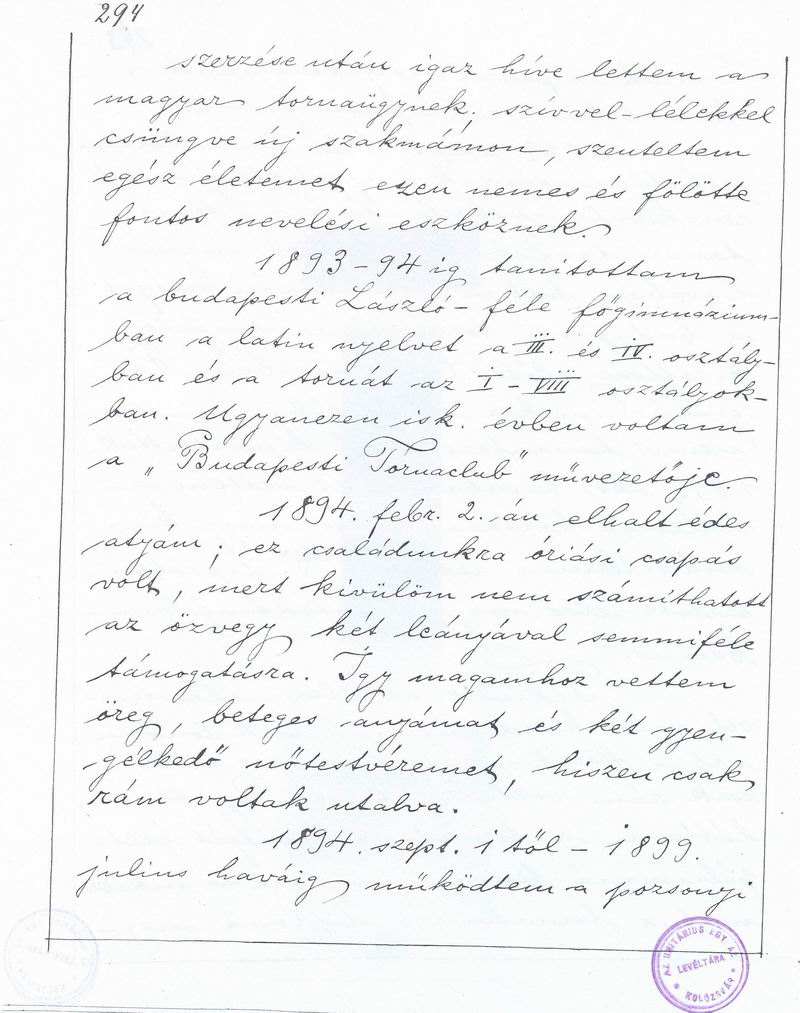 294
szerzése után igaz híve lettem a
magyar tornaügynek, szívvel-lélekkel
csüngve új szakmámon, szenteltem
egész életemet ezen nemes és fölötte
fontos nevelési eszköznek.
1893-94 ig tanitottam
a budapesti László-féle főgimnázium-
ban a latin nyelvet a III. és IV. osztály-
ban és a tornát az I-VIII osztályok-
ban. Ugyanezen isk. évben voltam
a „Budapesti Tornaclub" művezetője.
1894. febr. 2. án elhalt édes
atyám; ez családunkra óriási csapás
volt, mert kivülöm nem számíthatott
az özvegy két leányával semmiféle
támogatásra. Így magamhoz vettem
öreg, beteges anyámat és két gyen-
gélkedő nőtestvéremet, hiszen csak
rám voltak utalva.
1894. szept. 1 től - 1899.
julius haváig működtem a pozsonyi
AZ UNITÁRIUS EGYHÁZ
LEVÉLTÁRA
KOLOZSVÁR